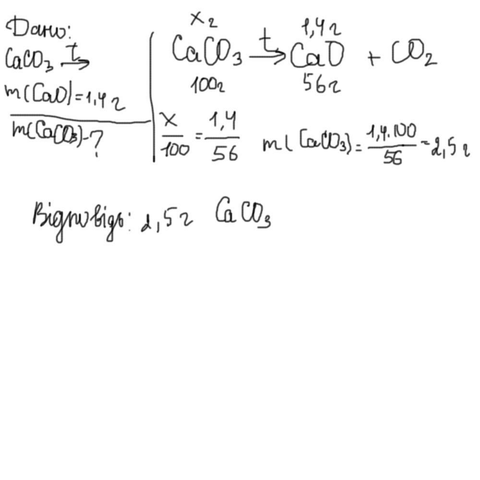 Дано:
CaCO₃ t→
m(CaO)=1,4г
m(CaCO₃)-?
xг 1,4г
CaCO₃ t→ CaO + CO₂
100г 56г
x/100 = 1,4/56
m(CaCO₃)= 1,4·100/56 = 2,5г
Відповідь: 2,5г CaCO₃